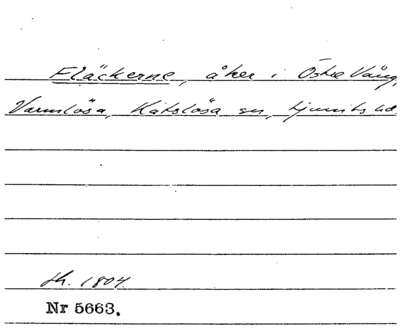 Fläckerne, åker i Östre Vång,
Varmlösa, Kattlösa sn, Ljunits hd
sh. 1804
Nr 5663.